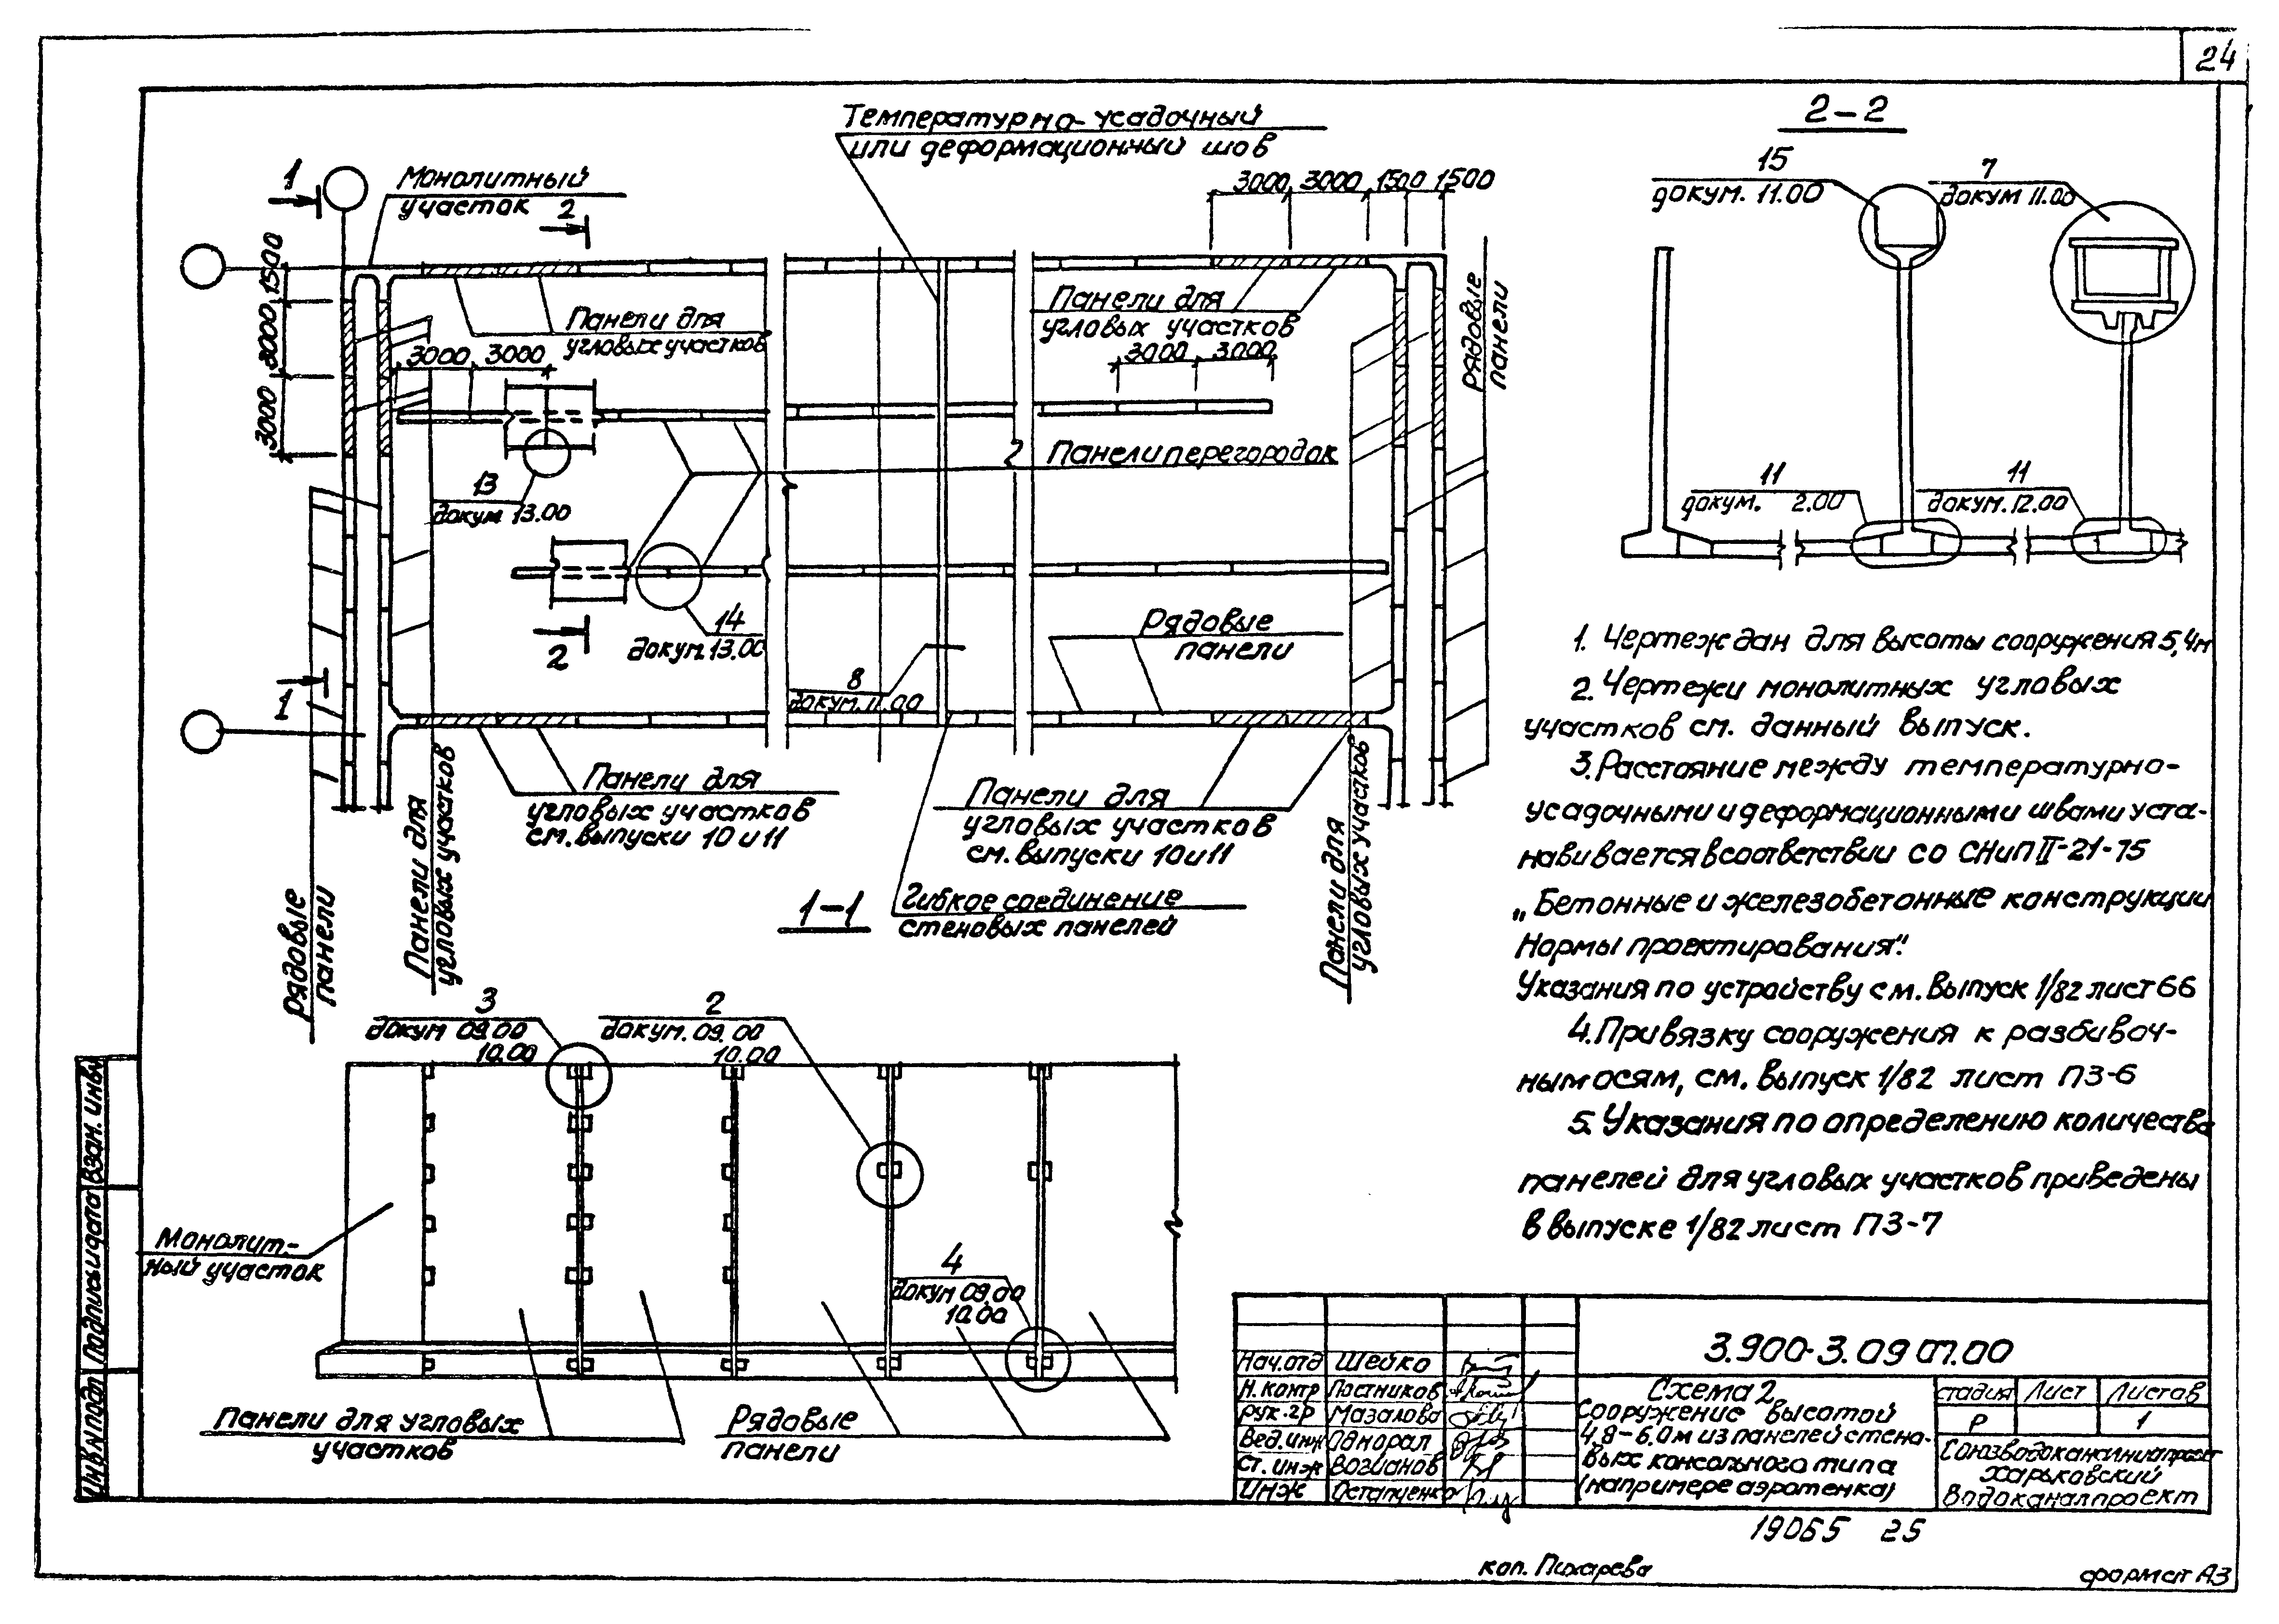 24
Температурно-усадочный
или деформационный шов
2-2
1
Монолитный
участок
2
3000 3000 1500 1500
15
докум. 11.00
7
докум 11.00
1500
3000
3000
Панели для
угловых участков
3000 3000
Панели для
угловых участков
3000 3000
Рядовые
панели
2 Панели перегородок
13
докум 13.00
11
докум. 2.00
11
докум. 12.00
14
докум. 13.00
2
1
8
докум. 11.00
Рядовые
панели
Панели для
угловых участков
см. выпуски 10 и 11
Панели для
угловых участков
см. выпуски 10 и 11
Рядовые
панели
Панели для
угловых участков
Панели для
угловых участков
1-1
Гибкое соединение
стеновых панелей
1. Чертеж дан для высоты сооружения 5,4м
2. Чертежи монолитных угловых
участков см. данный выпуск.
3. Расстояние между температурно-
усадочными и деформационными швами уста-
навивается в соответствии со СНиП II-21-75
„Бетонные и железобетонные конструкции
Нормы проектирования".
Указания по устройству см. Выпуск 1/82 лист 66
4. Привязку сооружения к разбивоч-
ным осям, см. выпуск 1/82 лист ПЗ-6
5. Указания по определению количества
панелей для угловых участков приведены
в выпуске 1/82 лист ПЗ-7
3
докум 09.00
10.00
2
докум. 09.00
10.00
Монолит-
ный участок
4
докум 09.00
10.00
Панели для угловых
участков
Рядовые
панели
Взам. инв.
Подпись и дата
Инв. N подл
3.900-3.09 01.00
Нач.отд Шейко
Н. контр Постников
Рук. гр Мазалова
Вед. инж Однорал
Ст. инж Вогианов
Инж Остапченко
Схема 2
Сооружение высотой
4,8-6,0м из панелей стено-
вых консольного типа
(например аэротенка)
Стадия Лист Листов
Р 1
Союзводоканалниипроект
Харьковский
Водоканалпроект
19065 25
коп. Пихарева
формат А3